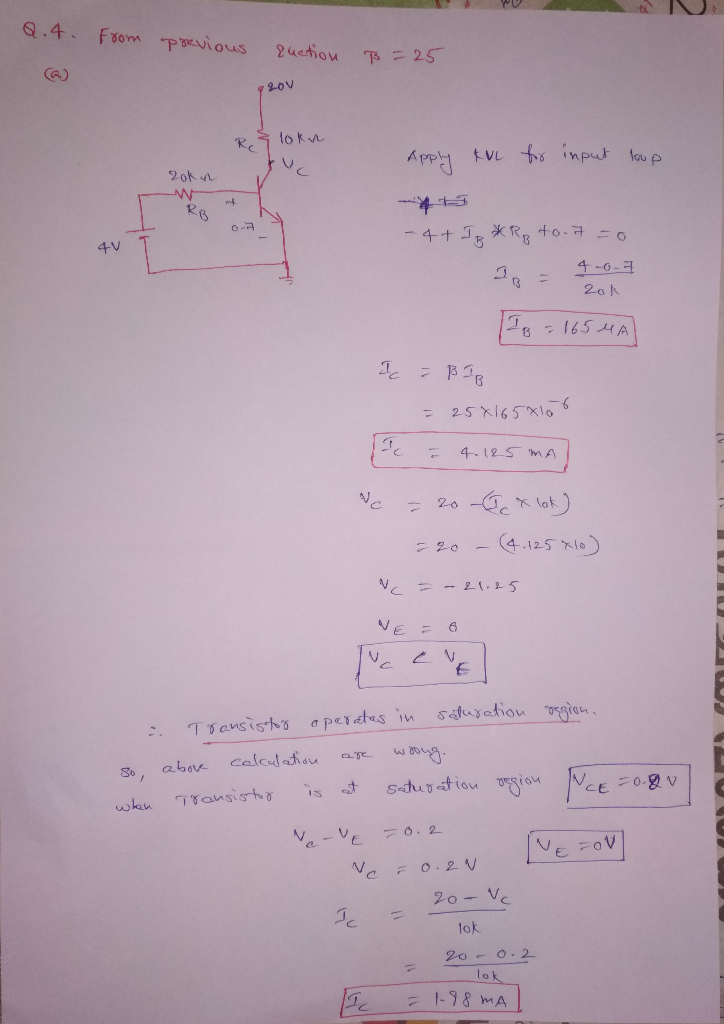 Q.4. From previous Question β = 25
(a)
20V
RC 10KΩ
VC
20KΩ
RB
+
0.7
-
4V
Apply KVL for input loop
-4 + IB * RB + 0.7 = 0
IB = 4-0.7
20k
IB = 165 μA
IC = βIB
= 25×165×10^-6
IC = 4.125 mA
VC = 20 - (IC × 10k)
= 20 - (4.125 ×10)
VC = -21.25
VE = 0
VC < VE
∴ Transistor operates in saturation region.
so, above calculation are wrong.
when Transistor is at saturation region VCE = 0.2 V
VC - VE = 0.2
VE = 0V
VC = 0.2 V
IC = 20 - VC
10k
= 20 - 0.2
10k
IC = 1.98 mA